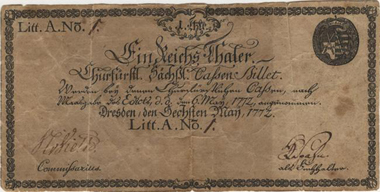 Litt. A. No. 1.
Ein Reichs-Thaler.
Churfürstl. Sächß. Cassen-Billet.
Werden bey denen Churfürstlichen Cassen, nach
Maasgabe des Edicts, d. d. den 6. May, 1772, angenommen.
Dresden, den Sechsten May, 1772.
Litt. A. No. 1.
Commissarius
als Buchhalter